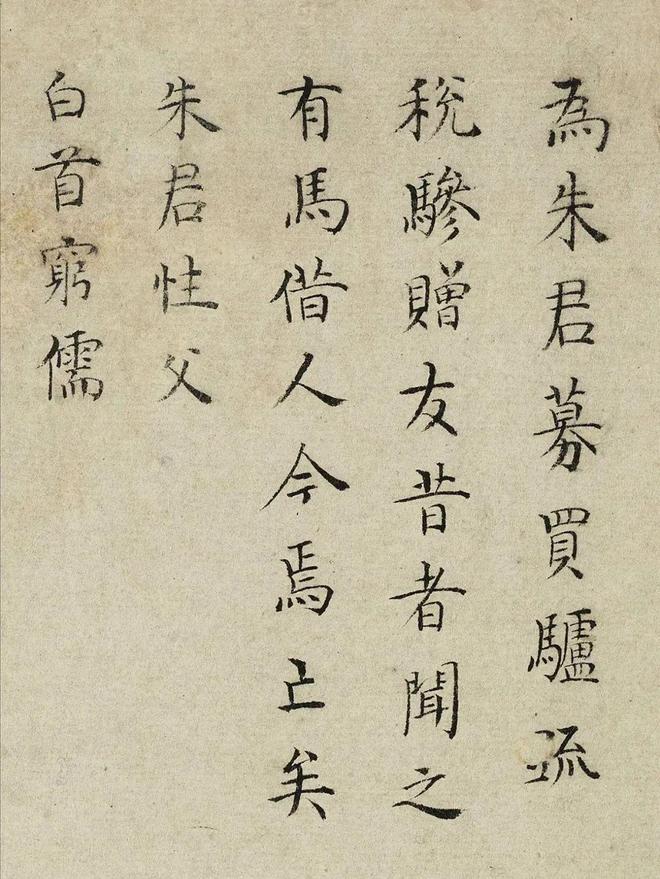 為朱君募買驢疏
税驂贈友昔者聞之
有馬借人今焉亡矣
朱君性父
白首窮儒